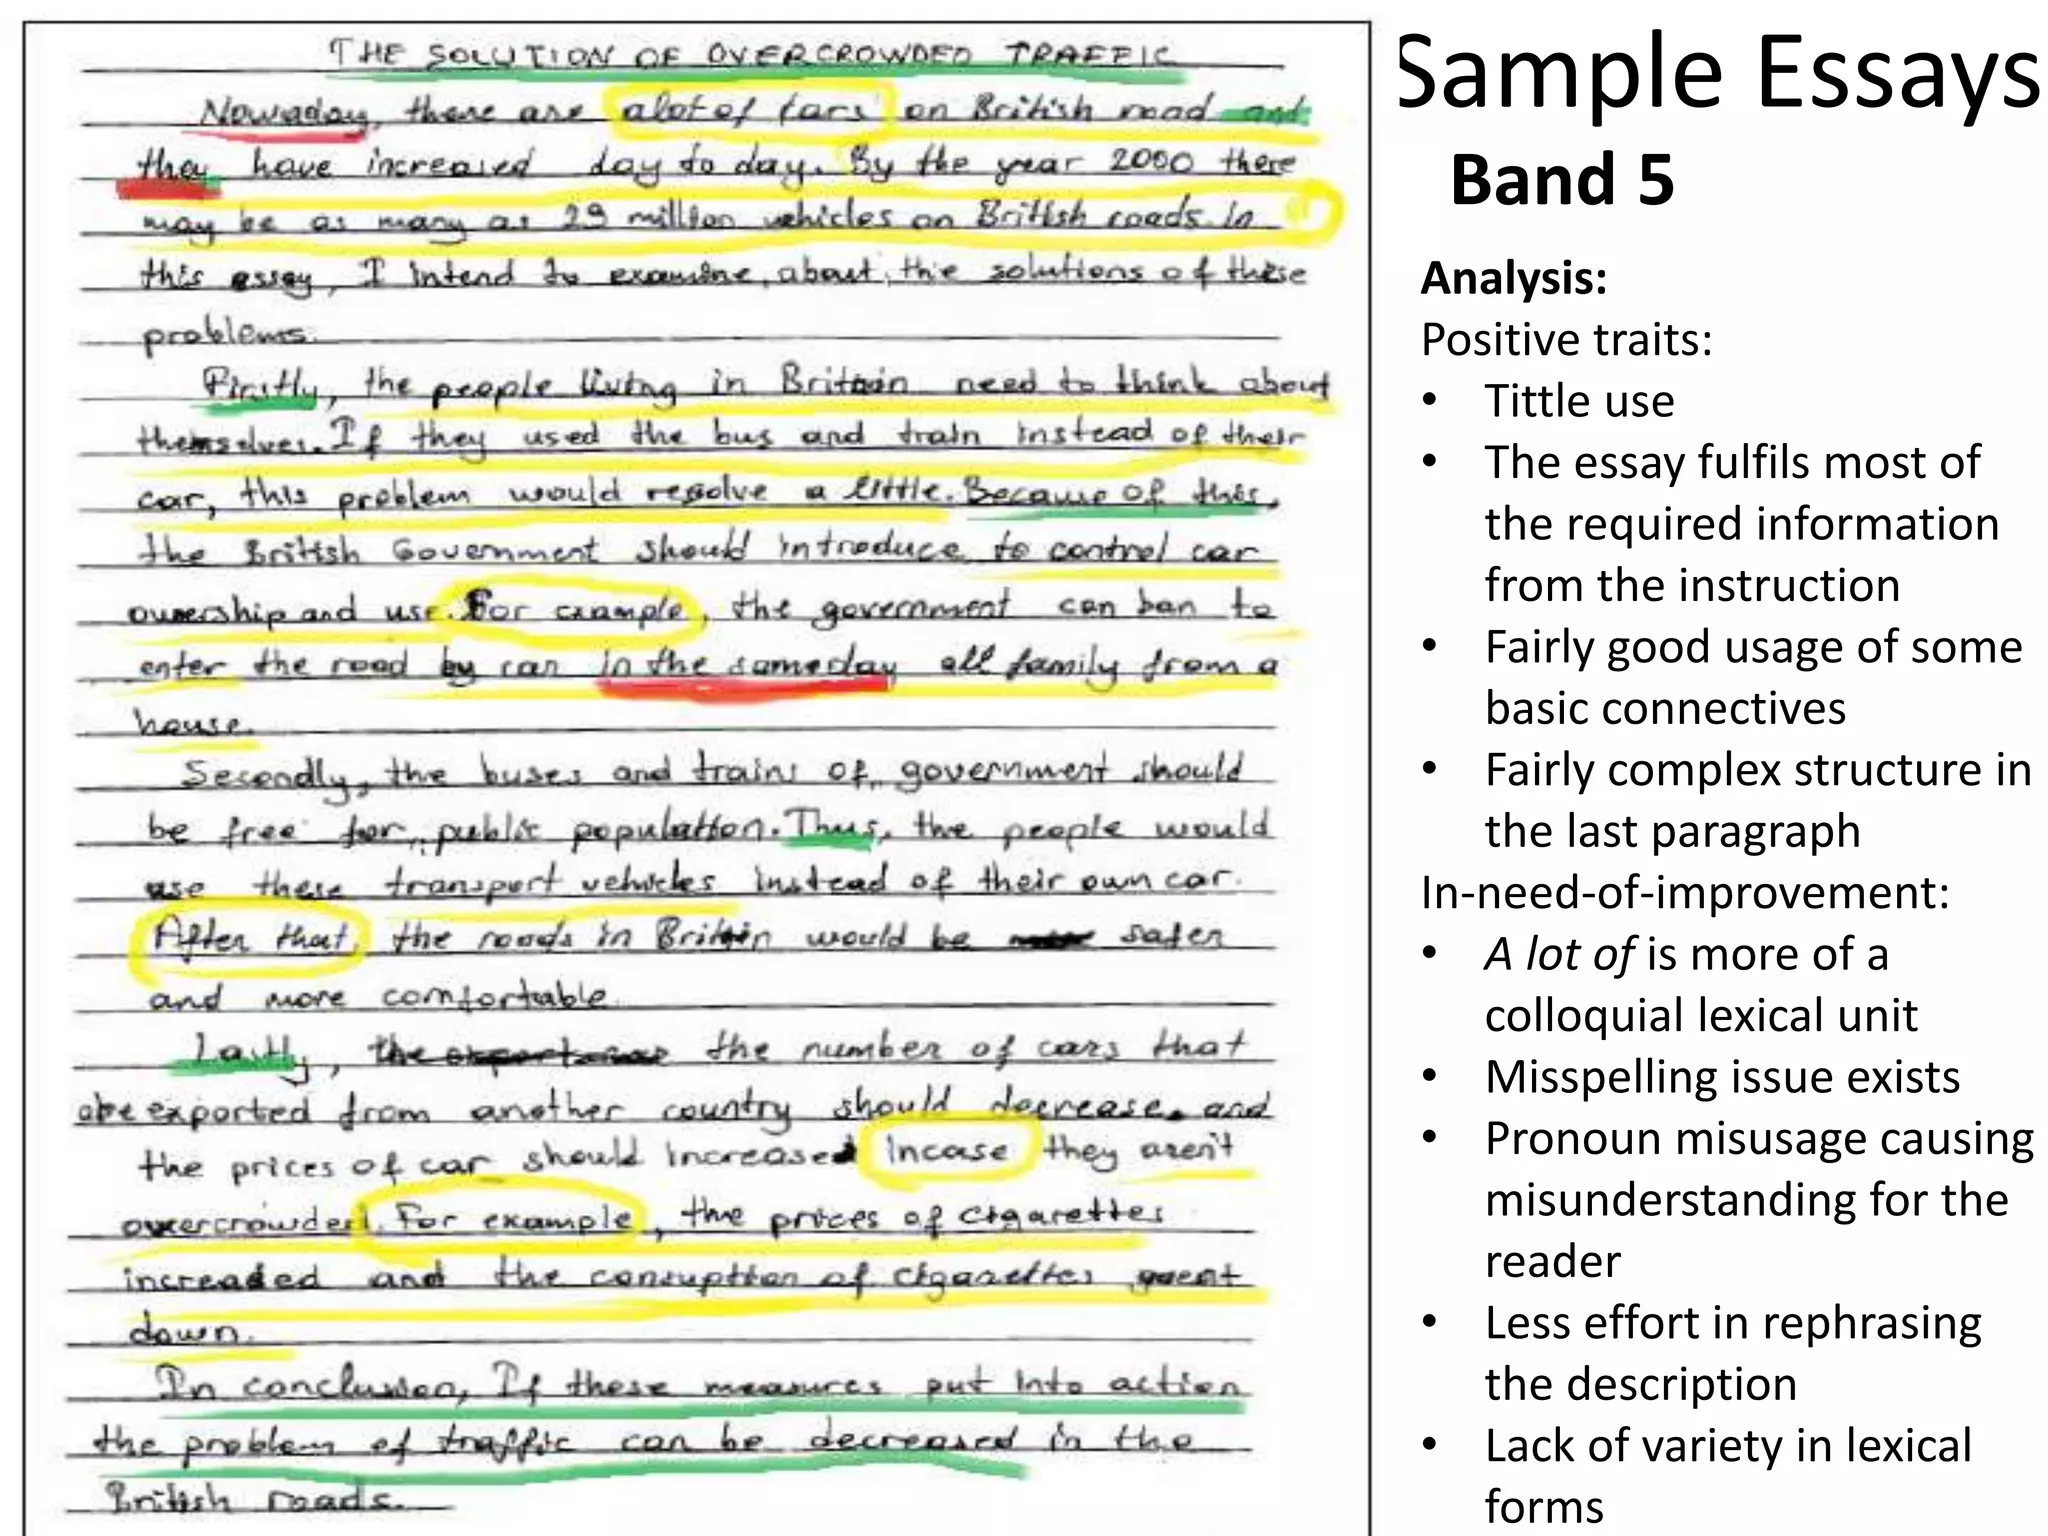 THE SOLUTION OF OVERCROWDED TRAFFIC
Nowaday, there are alot of cars on British road and
they have increased day to day. By the year 2000 there
may be as many as 29 million vehicles on British roads. In
this essay, I intend to examine about the solutions of these
problems.
Firstly, the people living in Britain need to think about
themselves. If they used the bus and train instead of their
car, this problem would resolve a little. Because of this,
the British Government should introduce to control car
ownership and use. For example, the government can ban to
enter the road by car in the sameday all family from a
house.
Secondly, the buses and trains of government should
be free for public population. Thus, the people would
use these transport vehicles instead of their own car.
After that, the roads in Britain would be safer
and more comfortable.
Lastly, the number of cars that
are exported from another country should decrease and
the prices of car should increased incase they aren't
overcrowded. For example, the prices of cigarettes
increaded and the consuption of cigarettes went
down.
In conclusion, If these measures put into action
the problem of traffic can be decreased in the
British roads.
Sample Essays
Band 5
Analysis:
Positive traits:
• Tittle use
• The essay fulfils most of
the required information
from the instruction
• Fairly good usage of some
basic connectives
• Fairly complex structure in
the last paragraph
In-need-of-improvement:
• A lot of is more of a
colloquial lexical unit
• Misspelling issue exists
• Pronoun misusage causing
misunderstanding for the
reader
• Less effort in rephrasing
the description
• Lack of variety in lexical
forms